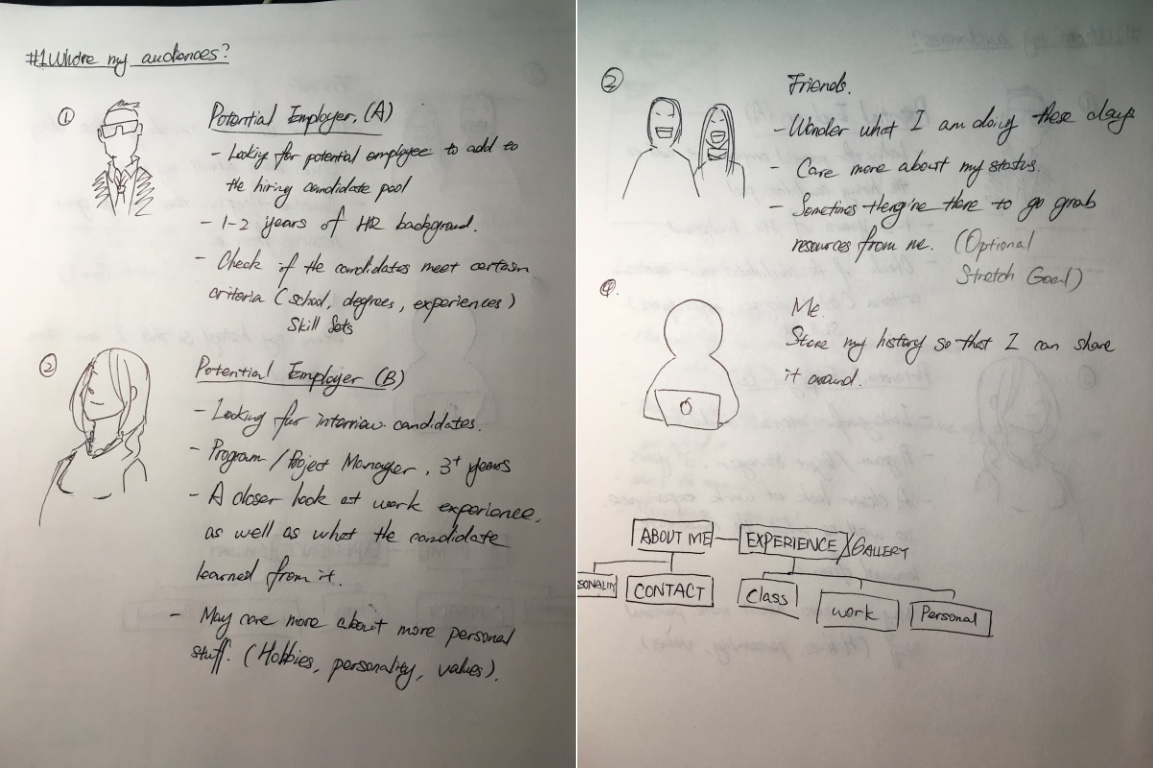 #1 Who're my audiences?
①
Potential Employer, (A)
- Looking for potential employee to add to
the hiring candidate pool
- 1-2 years of HR background.
- Check if the candidates meet certain
criteria (school, degrees, experiences)
Skill Sets
②
Potential Employer (B)
- Looking for interview candidates.
- Program / Project Manager, 3+ years
- A closer look at work experience,
as well as what the candidate
learned from it.
- May care more about more personal
stuff. (Hobbies, personality, values).
②
Friends.
- Wonder what I am doing these days
- Care more about my status.
- Sometimes they're there to go grab
resources from me. (Optional
Stretch Goal)
④.
Me.
Store my history so that I can share
it around.
ABOUT ME EXPERIENCE/GALLERY
SONALITY CONTACT Class work Personal